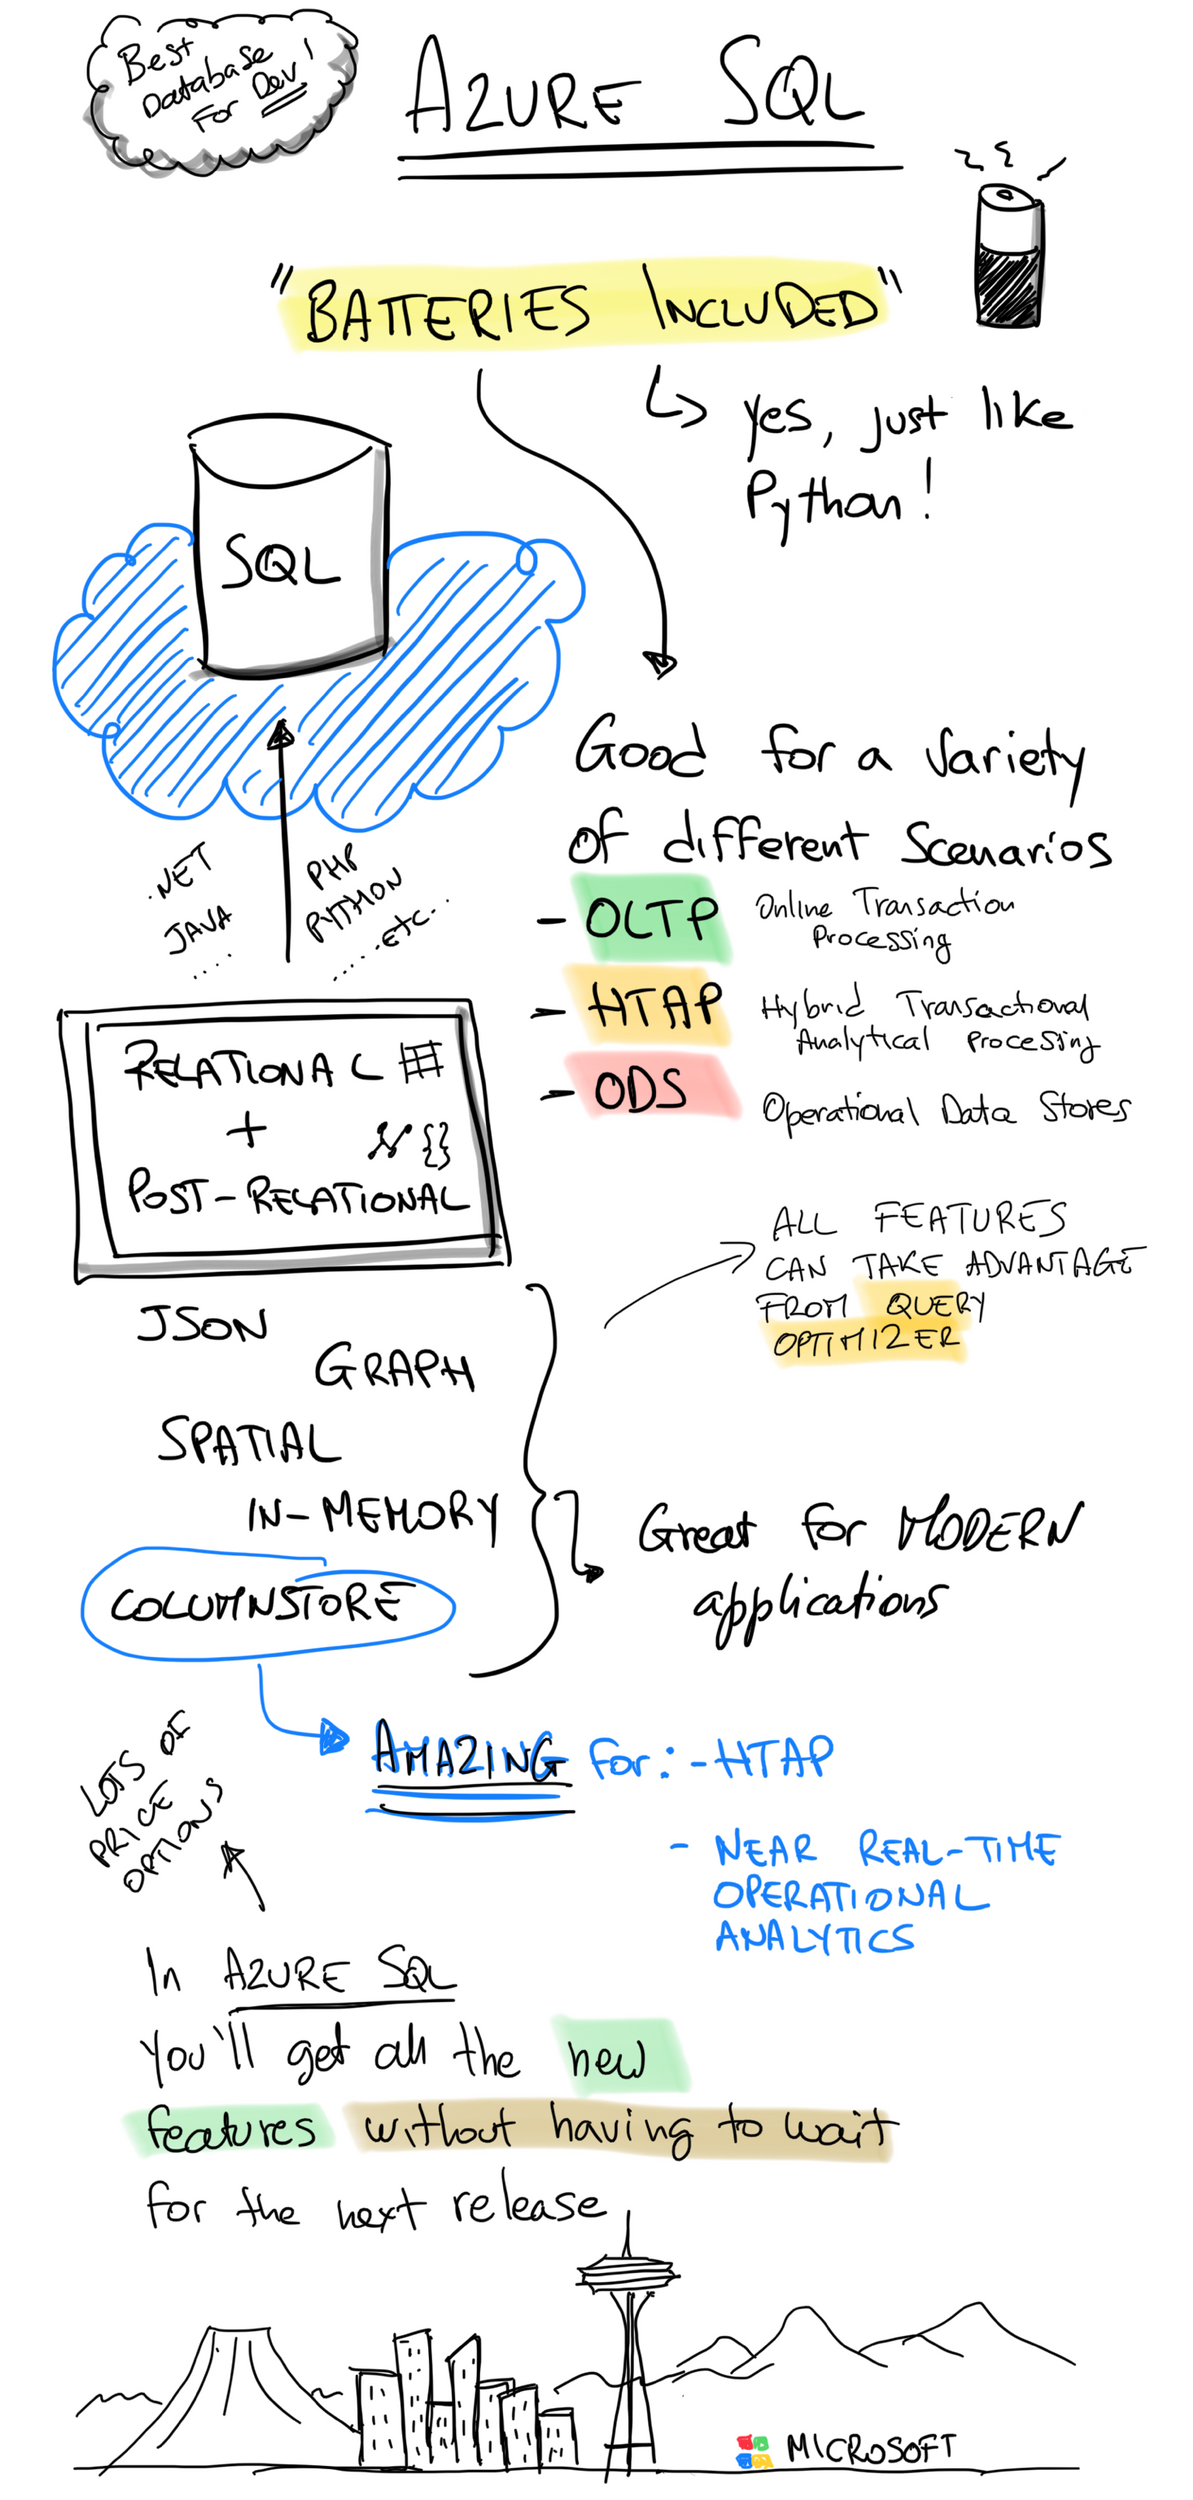 Best
Database
For Dev!
AZURE SQL
"BATTERIES INCLUDED"
yes, just like
Python!
SQL
Good for a variety
of different scenarios
- OLTP Online Transaction
Processing
- HTAP Hybrid Transactional
Analytical Procesing
- ODS Operational Data Stores
.NET
JAVA
.....
PHP
PYTHON
.....etc..
RELATIONAL
+
{}
POST-RELATIONAL
ALL FEATURES
CAN TAKE ADVANTAGE
FROM QUERY
OPTIMIZER
JSON
GRAPH
SPATIAL
IN-MEMORY
COLUMNSTORE
Great for MODERN
applications
AMAZING For: - HTAP
- NEAR REAL-TIME
OPERATIONAL
ANALYTICS
LOTS OF
PRICE
OPTIONS
In AZURE SQL
You'll get all the new
features without having to wait
for the next release
MICROSOFT